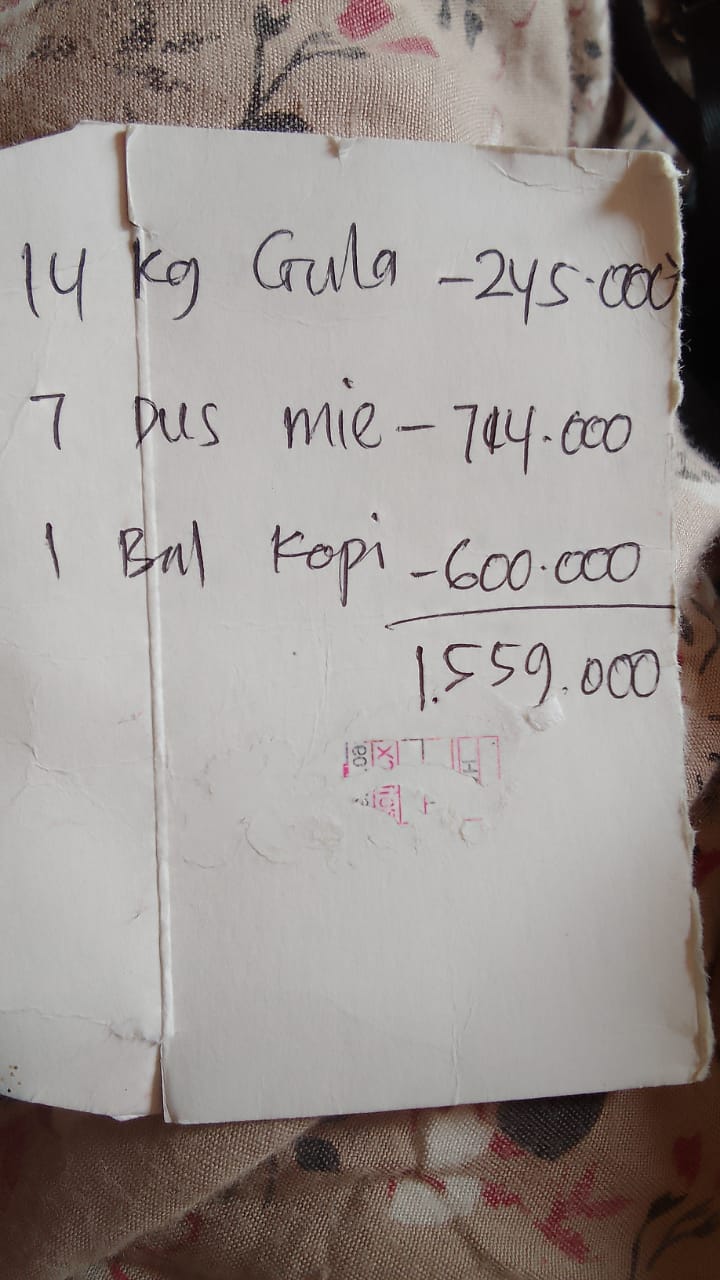 14 Kg Gula - 245.000
7 Dus mie - 714.000
1 Bal Kopi - 600.000
1.559.000